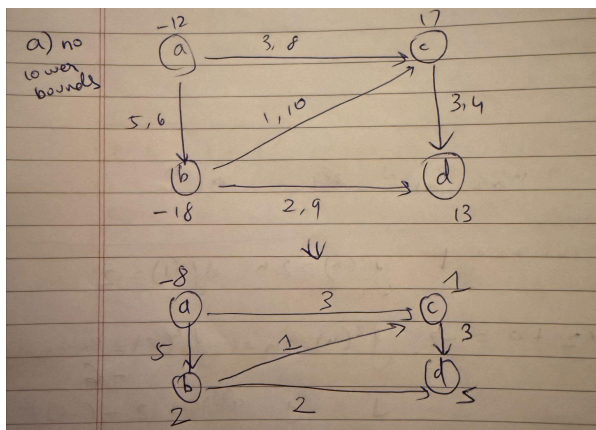 a) no
lower
bounds
-12
17
a
3, 8
c
5, 6
1, 10
3, 4
b
d
-18
2, 9
13
-8
1
a
3
c
5
1
3
b
d
2
2
5